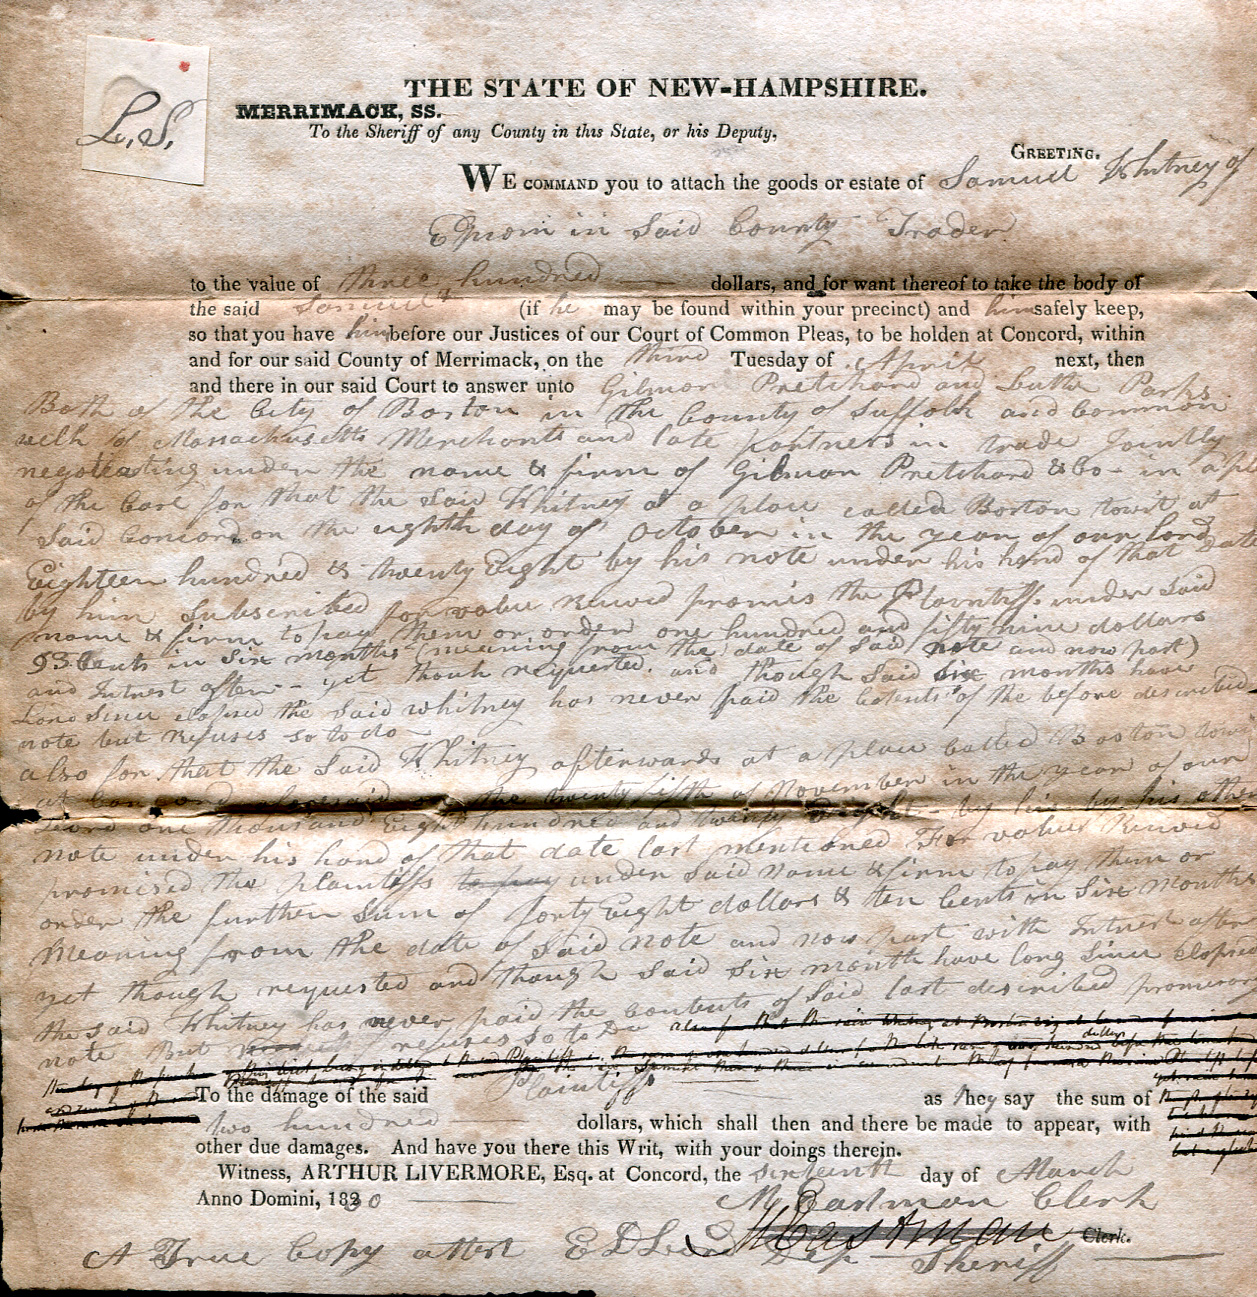 L.S.
THE STATE OF NEW-HAMPSHIRE.
MERRIMACK, SS.
To the Sheriff of any County in this State, or his Deputy,
GREETING.
WE COMMAND you to attach the goods or estate of Samuel Whitney of
Epsom in Said County Trader
to the value of three hundred dollars, and for want thereof to take the body of
the said Samuel (if he may be found within your precinct) and him safely keep,
so that you have him before our Justices of our Court of Common Pleas, to be holden at Concord, within
and for our said County of Merrimack, on the third Tuesday of April next, then
and there in our said Court to answer unto Gilman Pritchard and Luther Parks
Both of the City of Boston in the County of Suffolk and Common
welh of Massachusetts Merchants and late partners in trade Jointly
negotiating under the name & firm of Gilman Pritchard & Co - in a
of the Case for that the Said Whitney at a place called Boston towit at
Said Concord on the eighth day of October in the year of our Lord
Eighteen hundred & twenty Eight by his note under his hand of that date
by him Subscribed for value Received promis the Plaintiffs under Said
name & firm to pay them or order one hundred and fifty nine dollars
93 Cents in Six months (meaning from the date of Said note and now past)
and Intrest after - yet though requested and though Said Six months have
Long Since elapsed the Said Whitney has never paid the Contents of the before described
note but refuses so to do -
also for that the Said Whitney afterwards at a place Called Boston towit
at Concord aforesaid on the twenty fifth of November in the year of our
Lord one thousand Eight hundred and twenty Eight - by his by his other
note under his hand of that date last mentioned For value Received
promised the plaintiffs to pay under Said name & firm to pay them or
order the further Sum of forty Eight dollars & ten Cents in Six months
Meaning from the date of Said note and now past with Intrest after
yet though requested and though Said Six month have long Since elapsed
the said Whitney has never paid the Contents of Said last described promissory
note But refuses so to Do
To the damage of the said Plaintiffs as they say the sum of
two hundred dollars, which shall then and there be made to appear, with
other due damages. And have you there this Writ, with your doings therein.
Witness, ARTHUR LIVERMORE, Esq. at Concord, the sixteenth day of March
Anno Domini, 1830
M Eastman Clerk
M Eastman Clerk.
A True Copy attest E D Dep Sheriff